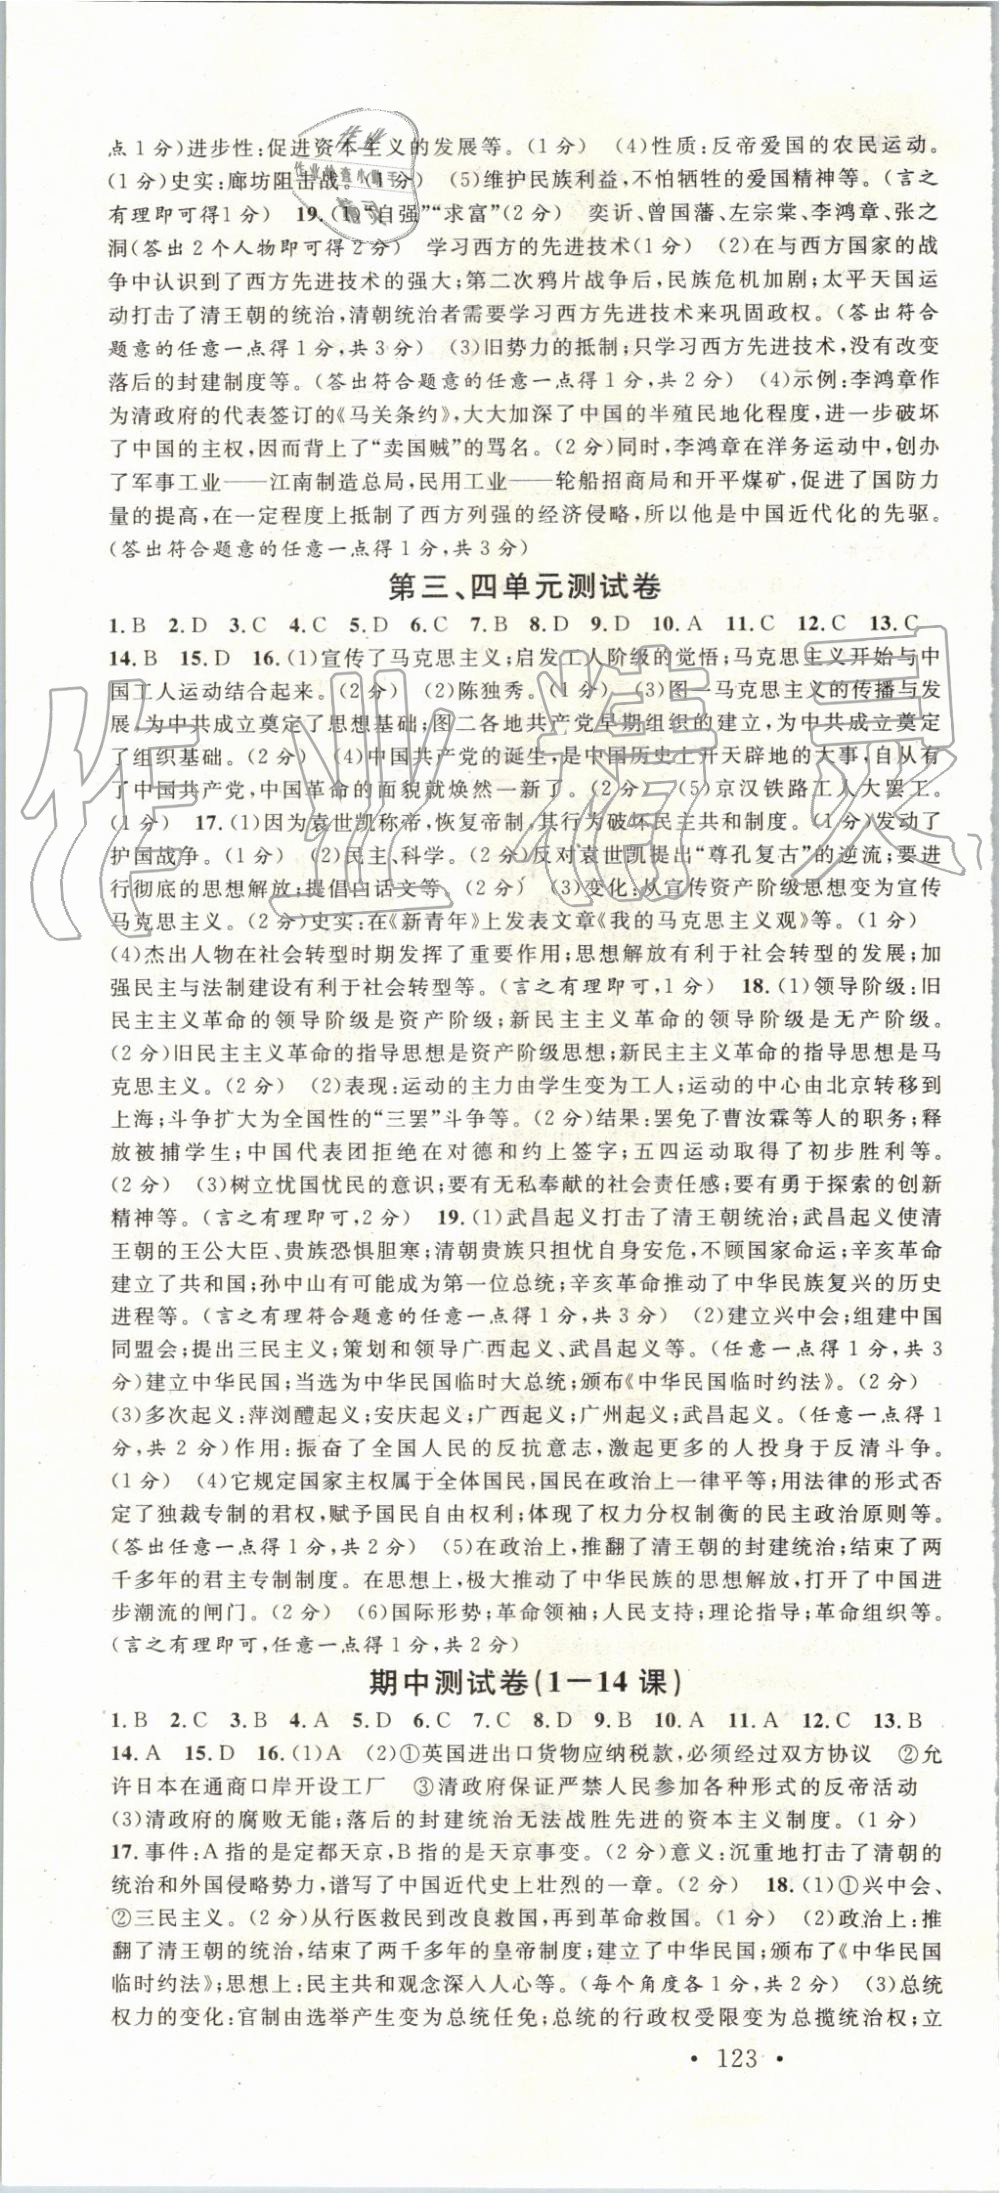 点1分)进步性:促进资本主义的发展等。(1分) (4)性质:反帝爱国的农民运动。
(1分)史实:廊坊阻击战。(1分) (5)维护民族利益,不怕牺牲的爱国精神等。(言之
有理即可得1分) 19.(1)“自强”“求富”(2分) 奕䜣、曾国藩、左宗棠、李鸿章、张之
洞(答出2个人物即可得2分) 学习西方的先进技术(1分) (2)在与西方国家的战
争中认识到了西方先进技术的强大;第二次鸦片战争后,民族危机加剧;太平天国运
动打击了清王朝的统治,清朝统治者需要学习西方先进技术来巩固政权。(答出符合
题意的任意一点得1分,共3分) (3)旧势力的抵制;只学习西方先进技术,没有改变
落后的封建制度等。(答出符合题意的任意一点得1分,共2分) (4)示例:李鸿章作
为清政府的代表签订的《马关条约》,大大加深了中国的半殖民地化程度,进一步破坏
了中国的主权,因而背上了“卖国贼”的骂名。(2分)同时,李鸿章在洋务运动中,创办
了军事工业——江南制造总局,民用工业——轮船招商局和开平煤矿,促进了国防力
量的提高,在一定程度上抵制了西方列强的经济侵略,所以他是中国近代化的先驱。
(答出符合题意的任意一点得1分,共3分)
第三、四单元测试卷
1.B 2.D 3.C 4.C 5.D 6.C 7.B 8.D 9.D 10.A 11.C 12.C 13.C
14.B 15.D 16.(1)宣传了马克思主义;启发工人阶级的觉悟;马克思主义开始与中
国工人运动结合起来。(2分) (2)陈独秀。(1分) (3)图一马克思主义的传播与发
展,为中共成立奠定了思想基础;图二各地共产党早期组织的建立,为中共成立奠定
了组织基础。(2分) (4)中国共产党的诞生,是中国历史上开天辟地的大事,自从有
了中国共产党,中国革命的面貌就焕然一新了。(2分) (5)京汉铁路工人大罢工。
(1分) 17.(1)因为袁世凯称帝,恢复帝制,其行为破坏民主共和制度。(1分)发动了
护国战争。(1分) (2)民主、科学。(2分)反对袁世凯提出“尊孔复古”的逆流;要进
行彻底的思想解放;提倡白话文等。(2分) (3)变化:从宣传资产阶级思想变为宣传
马克思主义。(2分)史实:在《新青年》上发表文章《我的马克思主义观》等。(1分)
(4)杰出人物在社会转型时期发挥了重要作用;思想解放有利于社会转型的发展;加
强民主与法制建设有利于社会转型等。(言之有理即可,1分) 18.(1)领导阶级:旧
民主主义革命的领导阶级是资产阶级;新民主主义革命的领导阶级是无产阶级。
(2分)旧民主主义革命的指导思想是资产阶级思想;新民主主义革命的指导思想是马
克思主义。(2分) (2)表现:运动的主力由学生变为工人;运动的中心由北京转移到
上海;斗争扩大为全国性的“三罢”斗争等。(2分)结果:罢免了曹汝霖等人的职务;释
放被捕学生;中国代表团拒绝在对德和约上签字;五四运动取得了初步胜利等。
(2分) (3)树立忧国忧民的意识;要有无私奉献的社会责任感;要有勇于探索的创新
精神等。(言之有理即可,2分) 19.(1)武昌起义打击了清王朝统治;武昌起义使清
王朝的王公大臣、贵族恐惧胆寒;清朝贵族只担忧自身安危,不顾国家命运;辛亥革命
建立了共和国;孙中山有可能成为第一位总统;辛亥革命推动了中华民族复兴的历史
进程等。(言之有理符合题意的任意一点得1分,共3分) (2)建立兴中会;组建中国
同盟会;提出三民主义;策划和领导广西起义、武昌起义等。(任意一点得1分,共3
分)建立中华民国;当选为中华民国临时大总统;颁布《中华民国临时约法》。(2分)
(3)多次起义:萍浏醴起义;安庆起义;广西起义;广州起义;武昌起义。(任意一点得1
分,共2分)作用:振奋了全国人民的反抗意志,激起更多的人投身于反清斗争。
(1分) (4)它规定国家主权属于全体国民,国民在政治上一律平等;用法律的形式否
定了独裁专制的君权,赋予国民自由权利;体现了权力分权制衡的民主政治原则等。
(答出任意一点得1分,共2分) (5)在政治上,推翻了清王朝的封建统治;结束了两
千多年的君主专制制度。在思想上,极大推动了中华民族的思想解放,打开了中国进
步潮流的闸门。(2分) (6)国际形势;革命领袖;人民支持;理论指导;革命组织等。
(言之有理即可,任意一点得1分,共2分)
期中测试卷(1—14课)
1.B 2.C 3.B 4.A 5.D 6.C 7.C 8.D 9.B 10.A 11.A 12.C 13.B
14.A 15.D 16.(1)A (2)①英国进出口货物应纳税款,必须经过双方协议 ②允
许日本在通商口岸开设工厂 ③清政府保证严禁人民参加各种形式的反帝活动
(3)清政府的腐败无能;落后的封建统治无法战胜先进的资本主义制度。(1分)
17.事件:A指的是定都天京,B指的是天京事变。(2分)意义:沉重地打击了清朝的
统治和外国侵略势力,谱写了中国近代史上壮烈的一章。(2分) 18.(1)①兴中会、
②三民主义。(2分)从行医救民到改良救国,再到革命救国。(1分) (2)政治上:推
翻了清王朝的统治,结束了两千多年的皇帝制度;建立了中华民国;颁布了《中华民国
临时约法》;思想上:民主共和观念深入人心等。(每个角度各1分,共2分) (3)总统
权力的变化:官制由选举产生变为总统任免;总统的行政权受限变为总揽统治权;立
• 123 •
作业精灵
作业
作业检查小助手